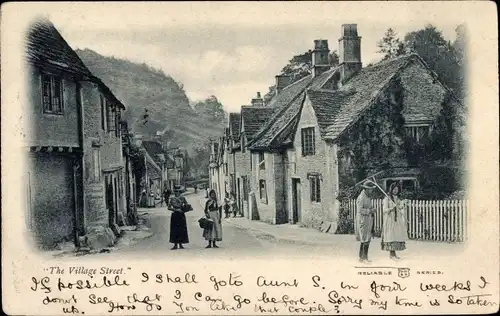 "The Village Street."
RELIABLE SERIES.
If possible I shall go to Aunt S. in four weeks I
don't see that I can go before. Sorry my time is so taken
up. How do you like that couple?